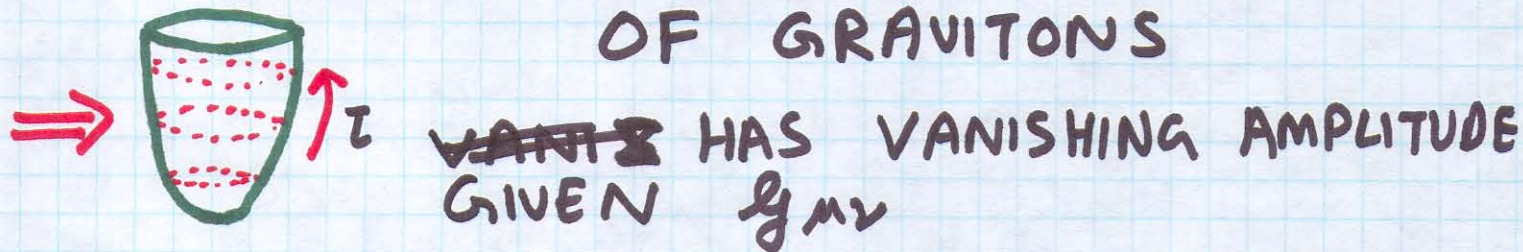 OF GRAVITONS
τ HAS VANISHING AMPLITUDE
GIVEN gμν